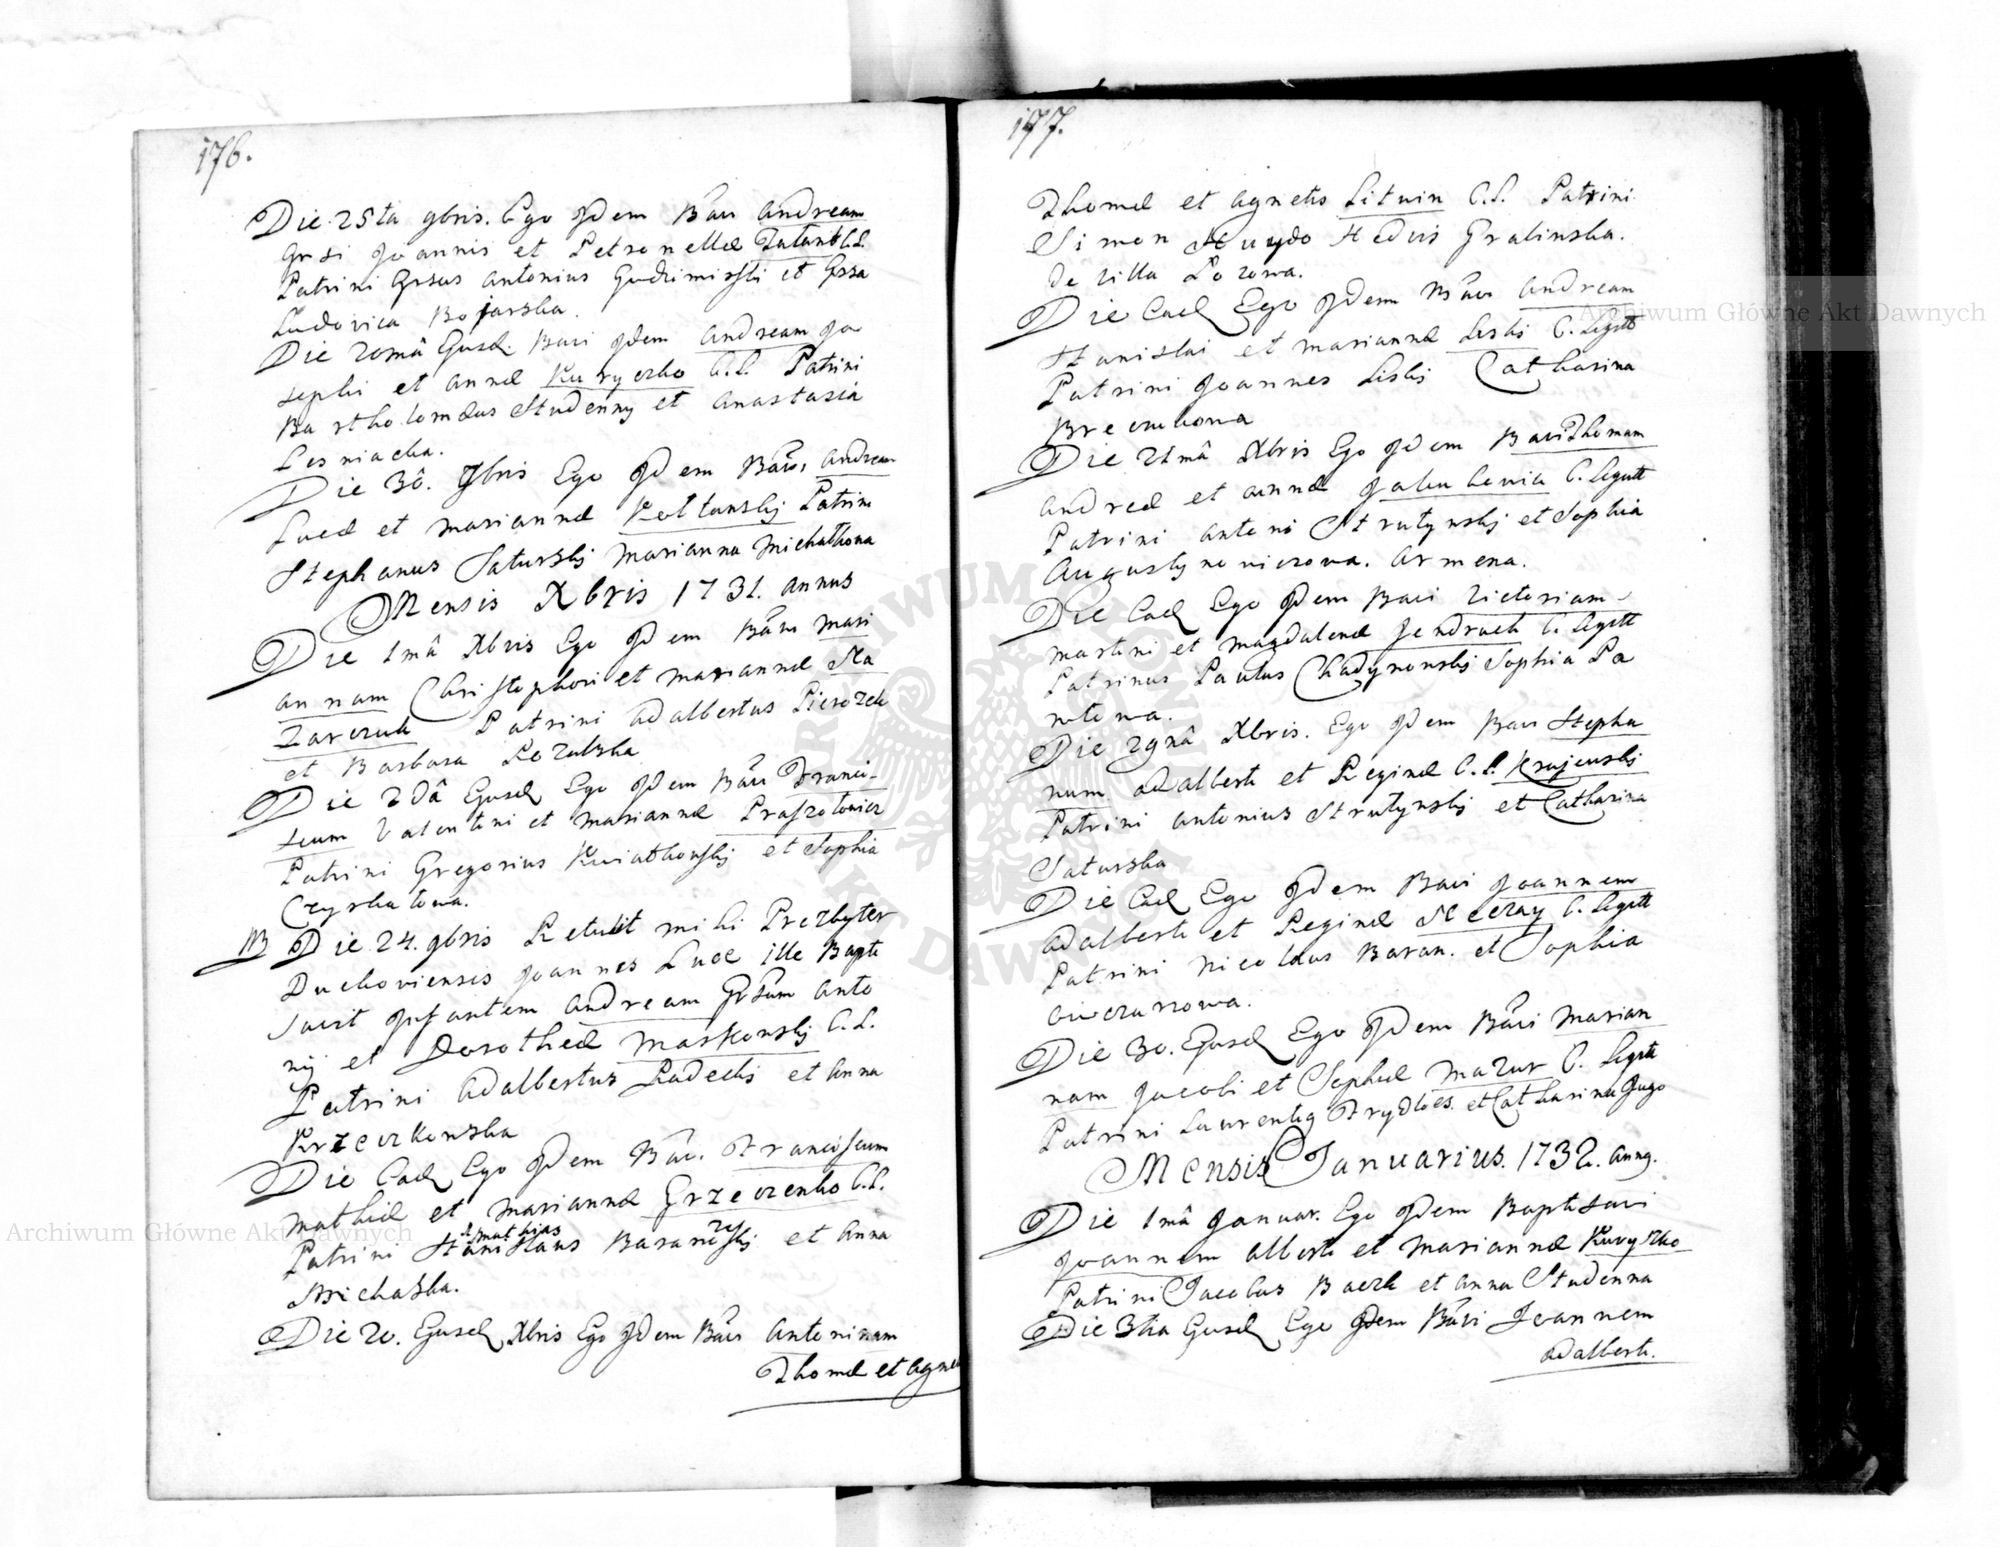 176.
Die 25ta 9bris. Ego Idem Bāui Andream
Grsi Joannis et Petronellæ C.L.
Patrini Grsus Antonius Gudzimirski et Grsa
Ludovica Bojarska.
Die 20mâ Eiusd. Baui Idem Andream Jo
sephi et Annæ Kuryczko C.L. Patrini
Bartholomæus Studenny et Anastasia
Lesniacka.
Die 30. 9bris Ego Idem Bāui Andream
Lucæ et Mariannæ Kottowskij Patrini
Stephanus Saturskij Marianna Michalkowa
Mensis Xbris 1731. Annus
Die 1mâ Xbris Ego Idem Bāui Mari
annam Christophori et Mariannæ Na
zarczuk Patrini Adalbertus Pierozek
et Barbara Kozulska
Die 2dâ Eiusd Ego Idem Bāui Franci-
scum Valentini et Mariannæ Praszlowicz
Patrini Gregorius Kwiatkowskij et Sophia
Czyrkatowa.
NB Die 24. 9bris Retulit mihi Prezbyter
Duchoviensis Joannes Luce ille Bapti
savit Infantem Andream Grsūm Anto
nij et Dorotheæ Maskowskij C.L.
Patrini Adalbertus Radeckis et Anna
Krzeczkowska
Die Ead Ego Idem Bāu. Franciscum
Mathiæ et Mariannæ Grzeczenko C.L.
Mathias
Patrini Stanislaus Baranskij et Anna
Michalska.
Die 20. Eiusd Xbris Ego Idem Bāui Antoninam
Thomæ et Agne
177.
Thomæ et Agnetis Litwin C.L. Patrini
Simon Huydo Hedvis Gralinska.
de villa Lozowa.
Die Ead Ego Idem Bāui Andream
Stanislai et Mariannæ Liskij C. Legitt
Patrini Joannes Liskij Catharina
Die 21mâ Xbris Ego Idem Baui Thomam
Andreæ et Annæ C. Legitt
Patrini Antoni Strutynskij et Sophia
Augustynowiczowa. Armena.
Die Ead Ego Idem Baui Victoriam
Martini et Magdalenæ Jendruch C. Legitt
Patrinus Paulus Chadynowskij Sophia Pa
wtowa.
Die 29nâ Xbris. Ego Idem Baui Stepha
num. Adalberti et Reginæ C.L. Krajewskij
Patrini Antonius Strutynskij et Catharina
Saturska
Die Ead Ego Idem Baui Joannem
Adalberti et Reginæ C. Legitt
Patrini Nicolaus Baran. et Sophia
Owczarzowa.
Die 30. Eiusd Ego Idem Bāui Marian
nam Jacobi et Sophiæ Mazur C. Legitt
Patrini Laurentig Frydkes. et Catharina Jugo
Mensis Januarius. 1732. Anng.
Die 1mâ Januar. Ego Idem Baptisavi
Joannem Alberti et Mariannæ Kuryczko
Patrini Jacobus Baczk et Anna Studenna
Die 3tia Eiusd Ego Idem Bāui Joannem
Adalberti.
Archiwum Główne Akt Dawnych
Archiwum Główne Akt Dawnych
ARCHIWUM GŁÓWNE AKT DAWNYCH